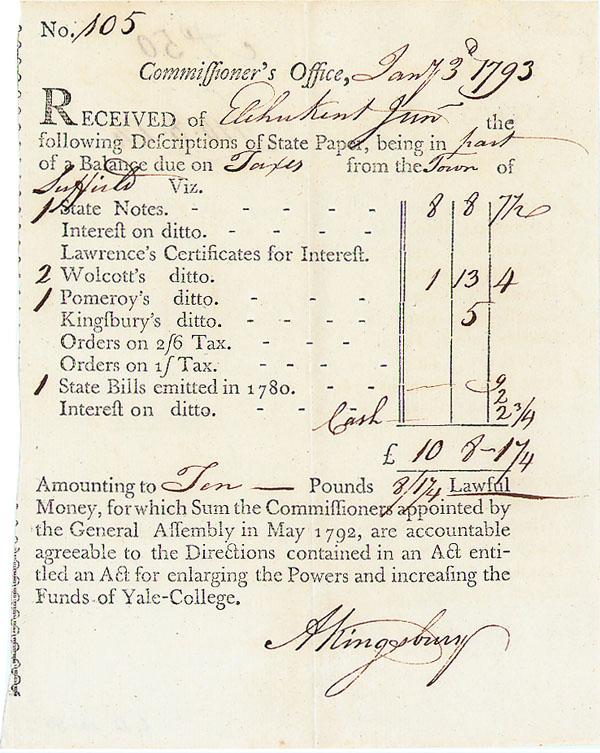 No. 105
Commiſſioner's Office, Jany 3d 1793
RECEIVED of Elihu Kent Junr the
following Deſcriptions of State Paper, being in part
of a Balance due on Taxes from the Town of
Suffield Viz.
1 State Notes. - - - - - 8 8 7½
Intereſt on ditto. - - - -
Lawrence's Certificates for Intereſt.
2 Wolcott's ditto. 1 13 4
1 Pomeroy's ditto. - - - -
Kingſbury's ditto. - - - - 5
Orders on 2ſ6 Tax. - - - -
Orders on 1ſ Tax. - - - -
1 State Bills emitted in 1780. - - - 9
Intereſt on ditto. - - - 2
Cash 2¾
£ 10 8-1¼
Amounting to Ten — Pounds 8/1¼ Lawful
Money, for which Sum the Commiſſioners appointed by
the General Aſſembly in May 1792, are accountable
agreeable to the Directions contained in an Act enti-
tled an Act for enlarging the Powers and increaſing the
Funds of Yale-College.
AKingsbury